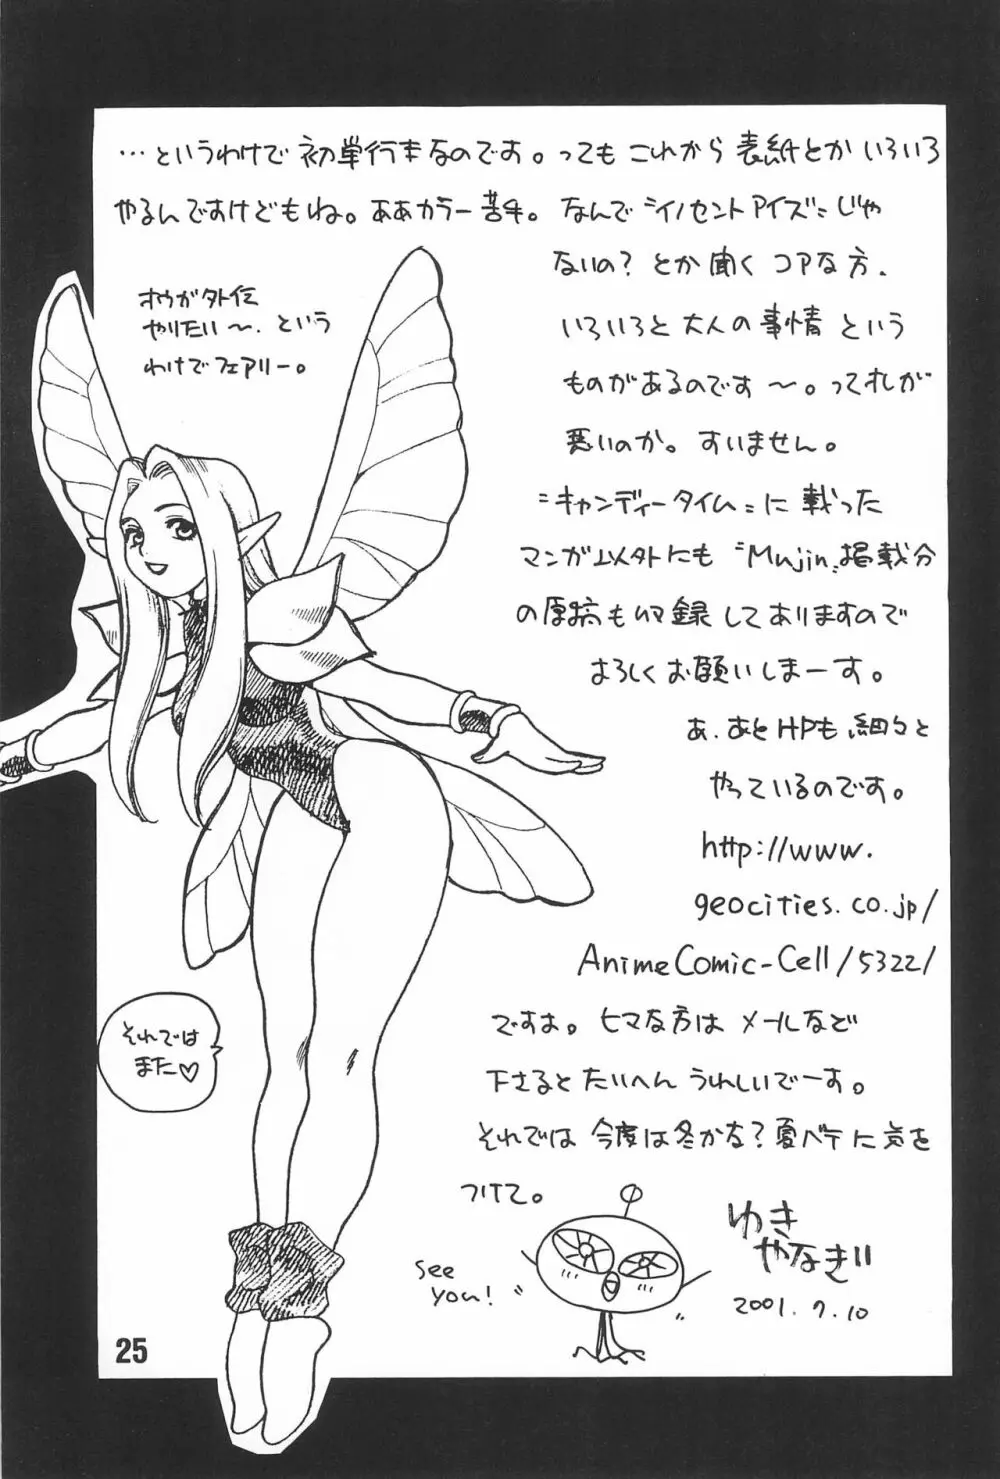 …というわけで初単行本なのです。ってもこれから表紙とかいろいろ
やるんですけどもね。ああカラー苦手。なんで〝イノセントアイズ〟じゃ
ないの?とか聞くコアな方、
いろいろと大人の事情という
ものがあるのです〜。ってオレが
悪いのか。すいません。
〝キャンディータイム〟に載った
マンガ以外にも〝Mujin〟掲載分
の原稿もいっぱい録してありますので
よろしくお願いしまーす。
あ、あとHPも細々と
やっているのです。
http://www.
geocities.co.jp/
AnimeComic-Cell/5322/
ですよ。ヒマな方はメールなど
下さるとたいへんうれしいでーす。
それでは今度は冬かな?夏バテに気を
つけて。
ホウガ外伝
やりたい〜、という
わけでフェアリー。
それでは
また♡
see
you!
ゆき
やなぎ
2001.7.10
25